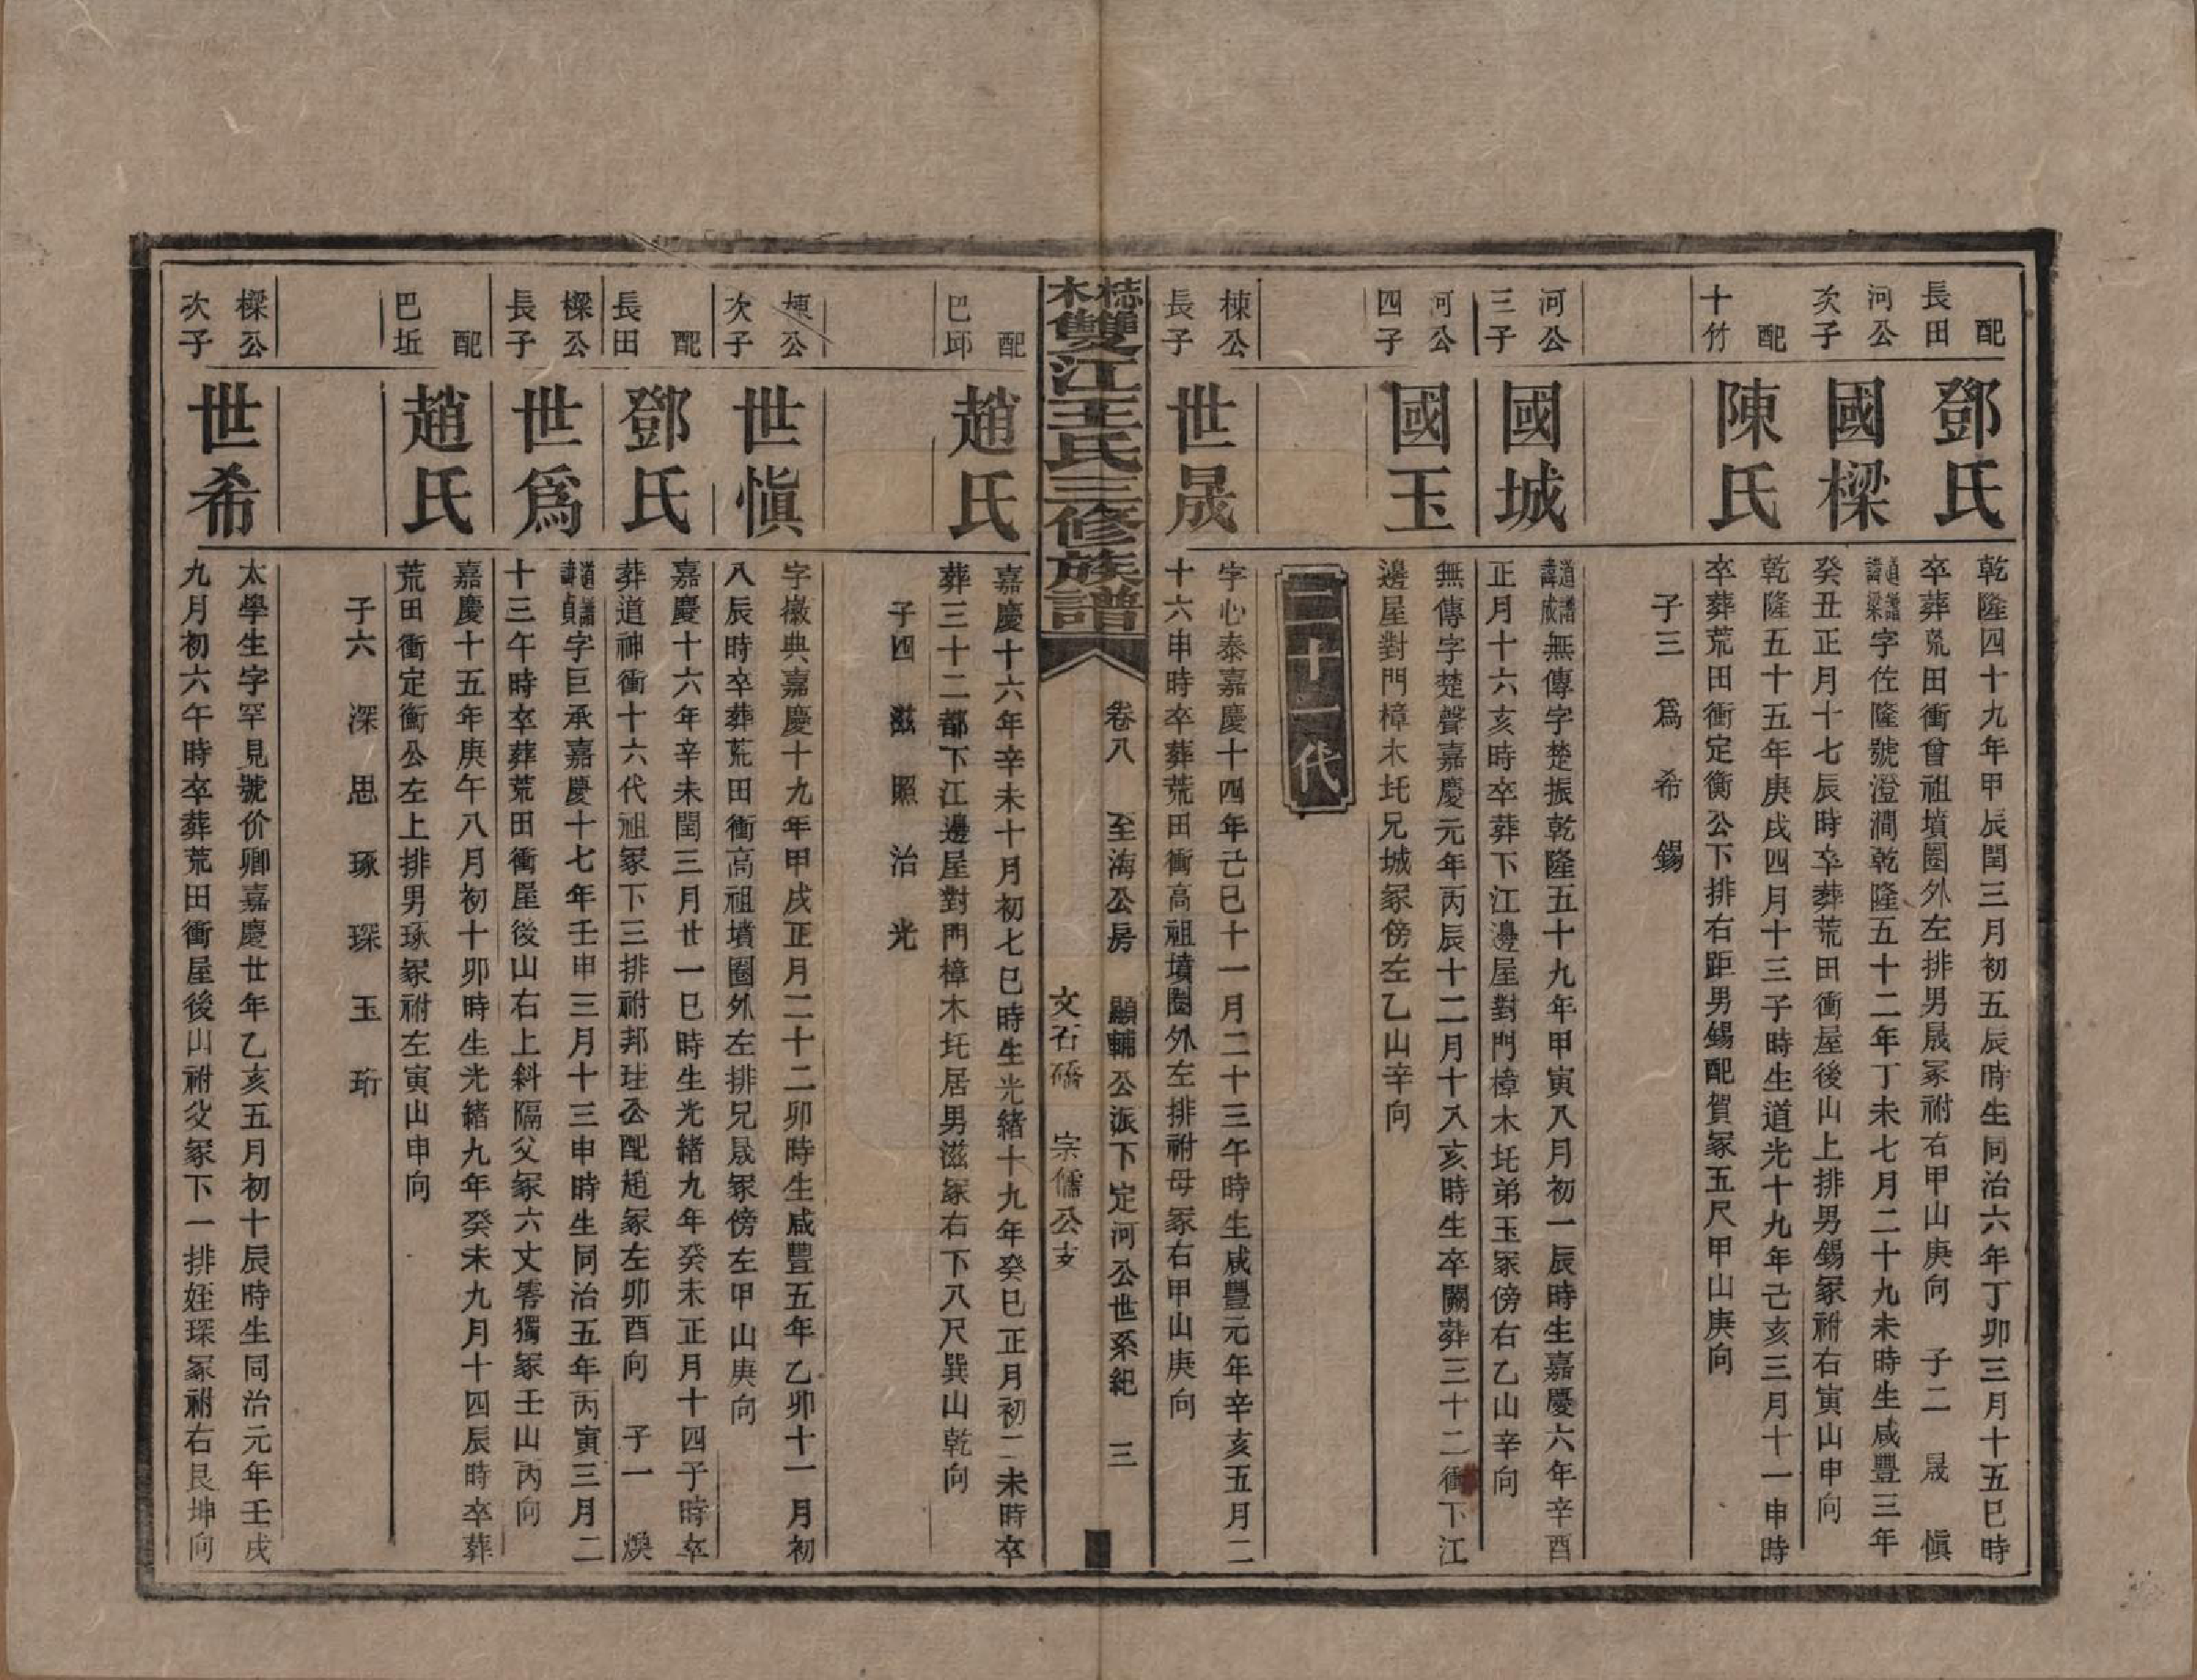 配
長田
鄧氏
乾隆四十九年甲辰閏三月初五辰時生同治六年丁卯三月十五巳時
卒葬荒田衝曾祖墳圈外左排男晟冢祔右甲山庚向　子二　晟　愼
河公
次子
國樑
道譜諱梁字佐隆號澄澗乾隆五十二年丁未七月二十九未時生咸豐三年
癸丑正月十七辰時卒葬荒田衝屋後山上排男錫冢祔右寅山申向
配
十竹
陳氏
乾隆五十五年庚戌四月十三子時生道光十九年己亥三月十一申時
卒葬荒田衝定衡公下排右距男錫配賀冢五尺甲山庚向
子三　爲　希　錫
河公
三子
國城
道譜諱成無傳字楚振乾隆五十九年甲寅八月初一辰時生嘉慶六年辛酉
正月十六亥時卒葬下江邊屋對門樟木圫弟玉冢傍右乙山辛向
河公
四子
國玉
無傳字楚聲嘉慶元年丙辰十二月十八亥時生卒闕葬三十二衝下江
邊屋對門樟木圫兄城冢傍左乙山辛向
二十一代
棟公
長子
世晟
字心泰嘉慶十四年己巳十一月二十三午時生咸豐元年辛亥五月二
十六申時卒葬荒田衝高祖墳圈外左排祔母冢右甲山庚向
梽木雙江王氏三修族譜
卷八　至海公房　顯輔公派下定河公世系紀　三
文石礄　宗儒公支
配
巴邱
趙氏
嘉慶十六年辛未十月初七巳時生光緒十九年癸巳正月初二未時卒
葬三十二都下江邊屋對門樟木圫居男滋冢右下八尺巽山乾向
子四　滋　照　治　光
棟公
次子
世愼
字徽典嘉慶十九年甲戌正月二十二卯時生咸豐五年乙卯十一月初
八辰時卒葬荒田衝高祖墳圈外左排兄晟冢傍左甲山庚向
配
長田
鄧氏
嘉慶十六年辛未閏三月廿一巳時生光緒九年癸未正月十四子時卒
葬道神衝十六代祖冢下三排祔邦珪公配趙冢左卯酉向　子一　煥
樑公
長子
世爲
道譜諱貞字巨承嘉慶十七年壬申三月十三申時生同治五年丙寅三月二
十三午時卒葬荒田衝屋後山右上斜隔父冢六丈零獨冢壬山丙向
配
巴坵
趙氏
嘉慶十五年庚午八月初十卯時生光緒九年癸未九月十四辰時卒葬
荒田衝定衡公左上排男琢冢祔左寅山申向
子六　深　思　琢　琛　玉　珩
樑公
次子
世希
太學生字罕見號价卿嘉慶廿年乙亥五月初十辰時生同治元年壬戌
九月初六午時卒葬荒田衝屋後山祔父冢下一排姪琛冢祔右艮坤向